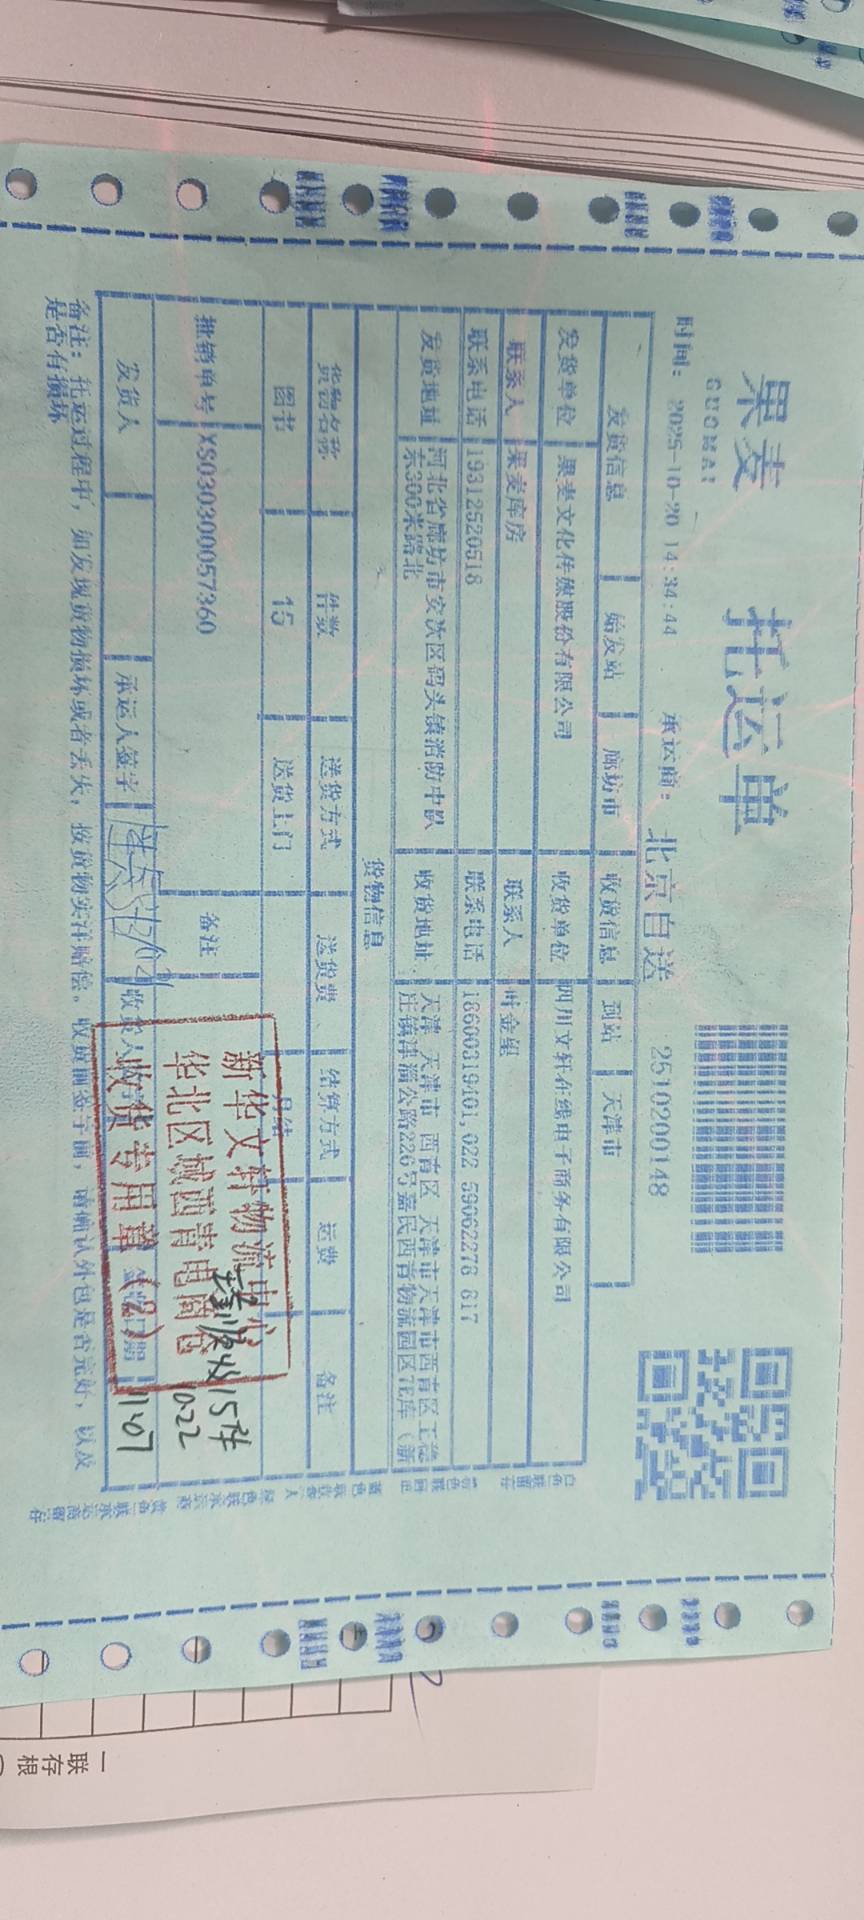 果麦
GUOMAI
托运单
时间: 2025-10-20 14:34:44 承运商: 北京自送 2510200148
发货信息 始发站 廊坊市 收货信息 到站 天津市
发货单位 果麦文化传媒股份有限公司 收货单位 四川文轩在线电子商务有限公司
联系人 果麦库房 联系人 叶金星
联系电话 19312520518 联系电话 18600319401, 022 59062276 817
发货地址 河北省廊坊市安次区码头镇消防中队东300米路北 收货地址 天津 天津市 西青区 天津市天津市西青区王稳庄镇津淄公路226号嘉民西青物流园区7E库 (新
货物信息
货物名称 件数 送货方式 送货费 结算方式 运费 备注
图书 15 送货上门 月结
批销单号 XS030300057360 备注
发货人 承运人签字 收货人 日期
备注: 托运过程中, 如发现货物损坏或者丢失, 按货物实洋赔偿。收货前签字前, 请确认外包是否完好, 以及
是否有损坏
新华文轩物流中心
华北区域西青电商仓
收货专用章 (2)
实收15件
10.22
11:07
一联存根